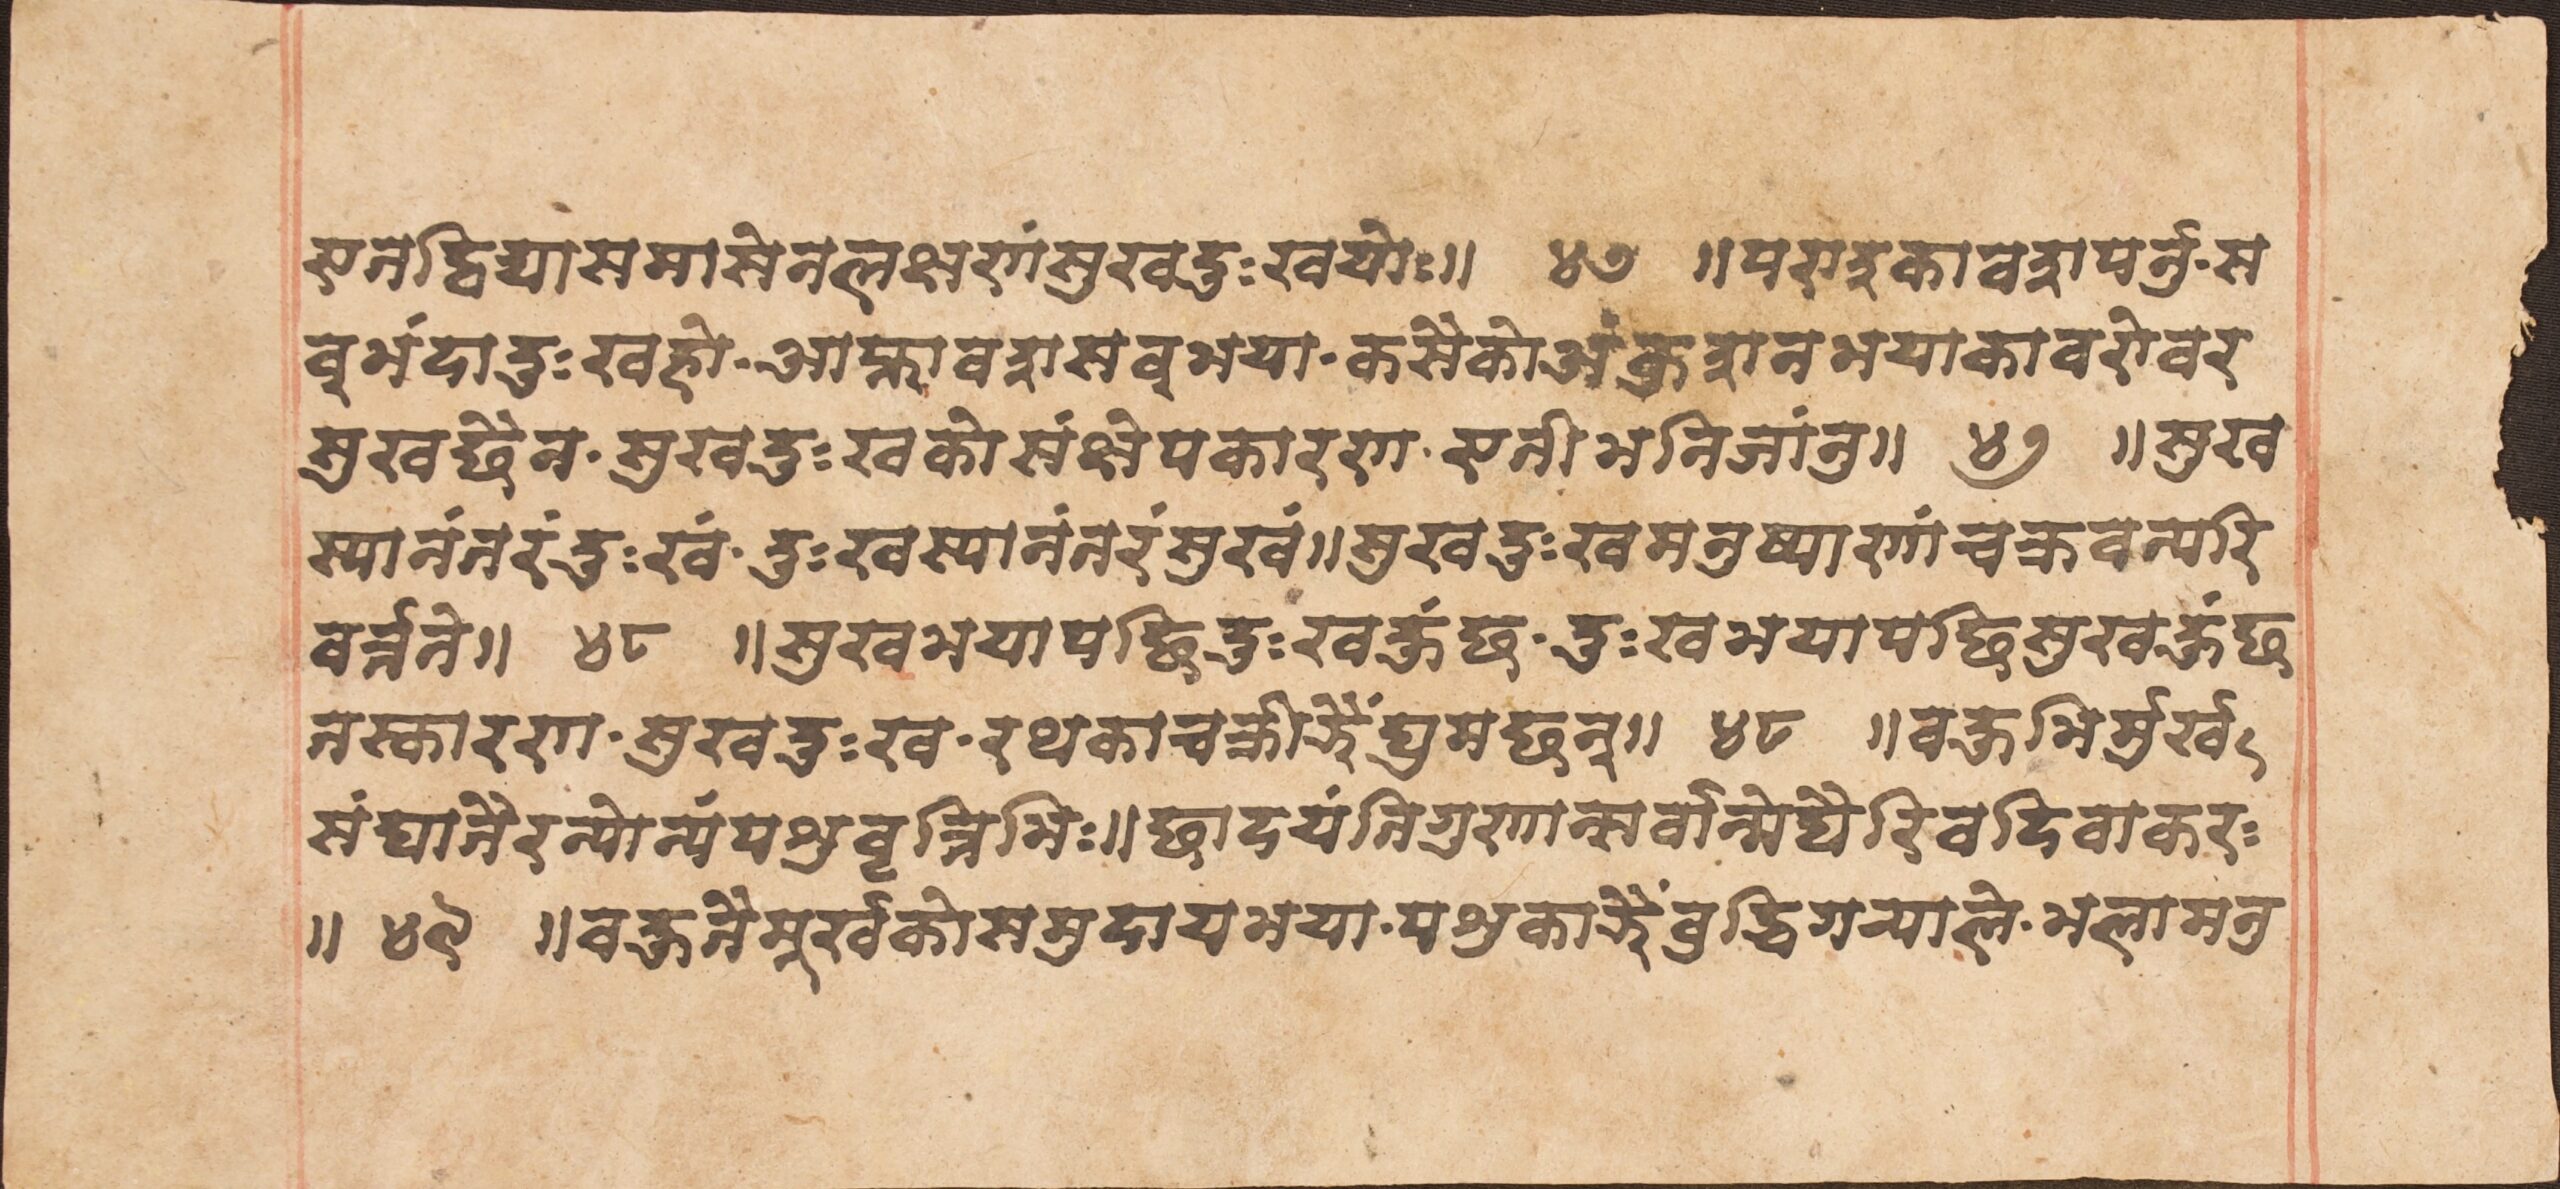 एतद्विद्यासमासेनलक्षणंसुखदुःखयोः॥ ४७ ॥पराइकावशपर्नु·स
वूभंदादुःखहो·आफ्नावशसवूभया·कसैकोअंकुशनभयाकावरोवर
सुखछैन·सुखदुःखकोसंक्षेपकारण·एतीभनिजांनु॥ ४७ ॥सुख
स्यानंतरंदुःखं·दुःखस्यानंतरंसुखं॥सुखदुःखमनुष्याणांचक्रवत्परि
वर्त्तते॥ ४८ ॥सुखभयापछिदुःखहुंछ·दुःखभयापछिसुखहुंछ
तस्कारण·सुखदुःख·रथकाचक्रीझैंघुमछन्॥ ४८ ॥वहुभिर्मुर्ख
संघातैरन्योन्यंपशुवृत्तिभिः॥छादयंतिगुणान्सर्वान्मेघैरिवदिवाकरः
॥ ४९ ॥वहुतैमूर्खकोसमुदायभया·पशुकाझैंवुद्धिगन्याले·भलामनु